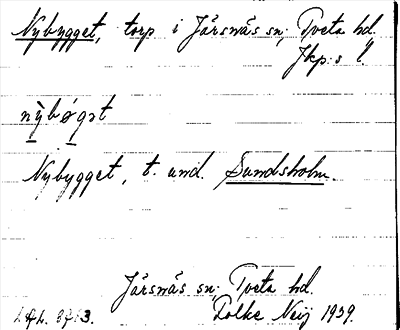 Nybygget, torp i Järsnäs sn; Tveta hd.
Jkp:s l.
nỳbǿgət
Nybygget, t. und. Sundsholm.
Järsnäs sn. Tveta hd.
Folke Neij 1939.